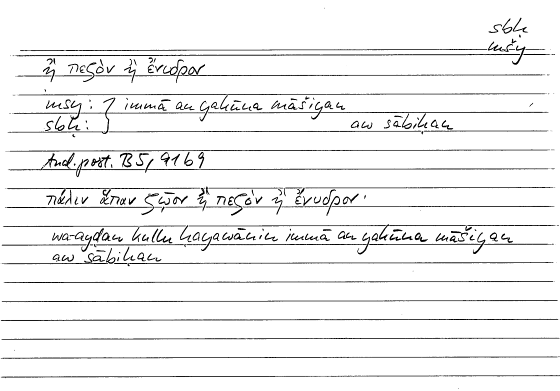 sbḥ
mšy
ἢ πεζὸν ἢ ἔνυδρον
mšy: } immā an yakūna māšiyan
sbḥ: } aw sābiḥan
And.post. B5, 91b9
πάλιν ἅπαν ζῷον ἢ πεζὸν ἢ ἔνυδρον·
wa-ayḍan kullu ḥayawānin immā an yakūna māšiyan
aw sābiḥan